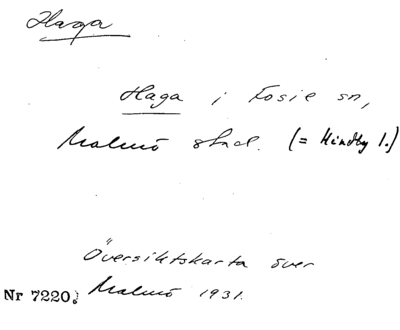 Haga
Haga i Fosie sn,
Malmö stad. (= Hindby 1.)
Översiktskarta över
Nr 7220. Malmö 1931.